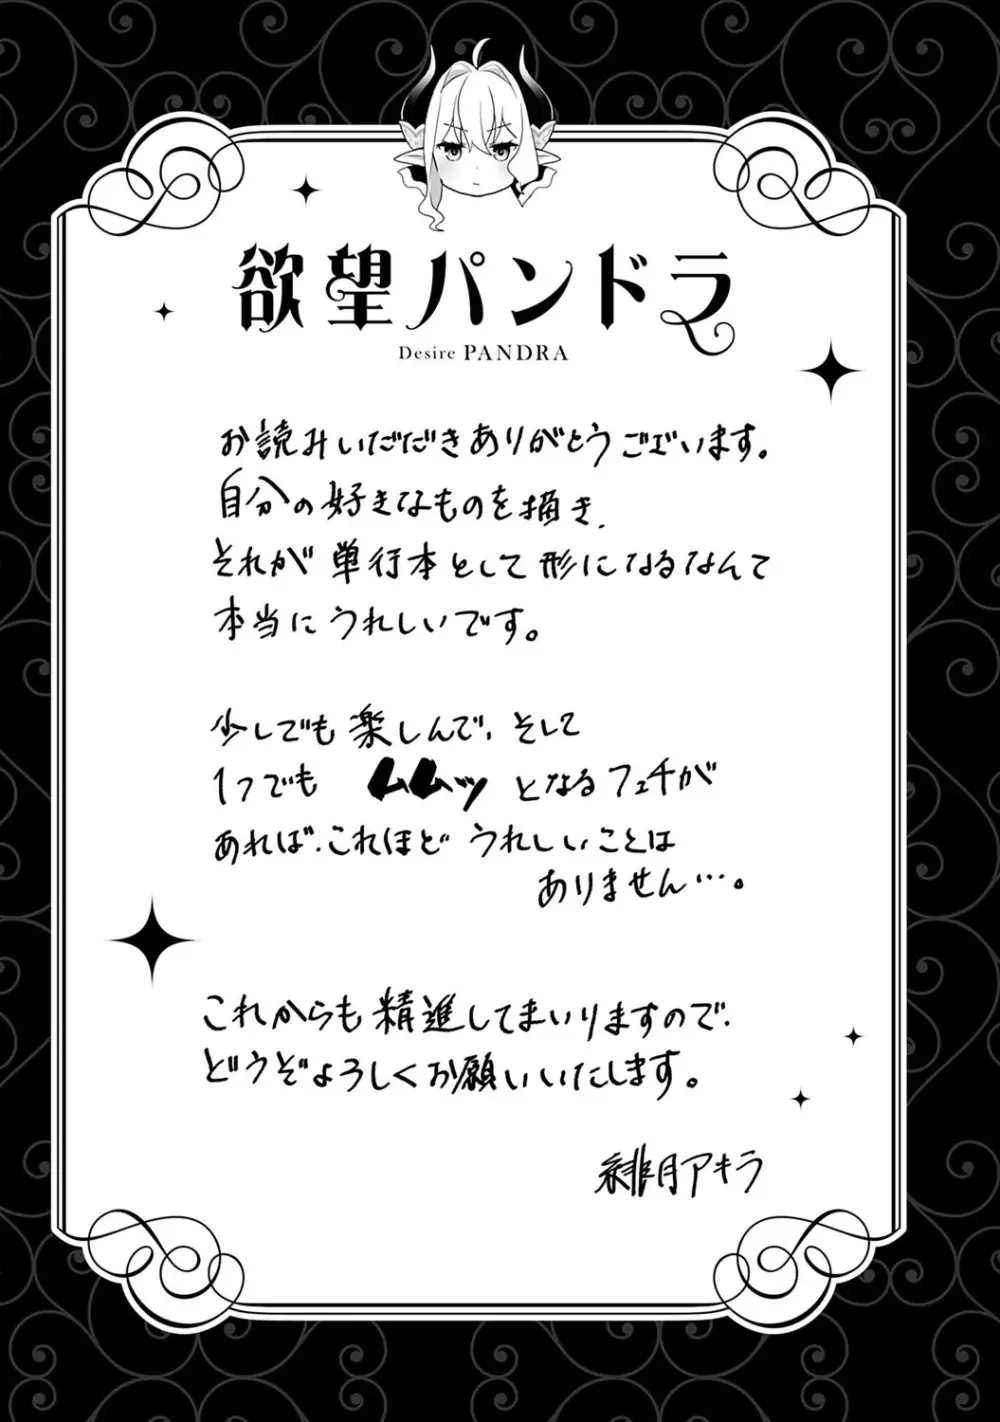 欲望パンドラ
Desire PANDRA
お読みいただきありがとうございます。
自分の好きなものを描き、
それが単行本として形になるなんて
本当にうれしいです。
少しでも楽しんで、そして
1つでも ムムムッ となるフェチが
あれば、これほど うれしいことは
ありません…。
これからも精進してまいりますので、
どうぞよろしくお願いいたします。
緋月アキラ